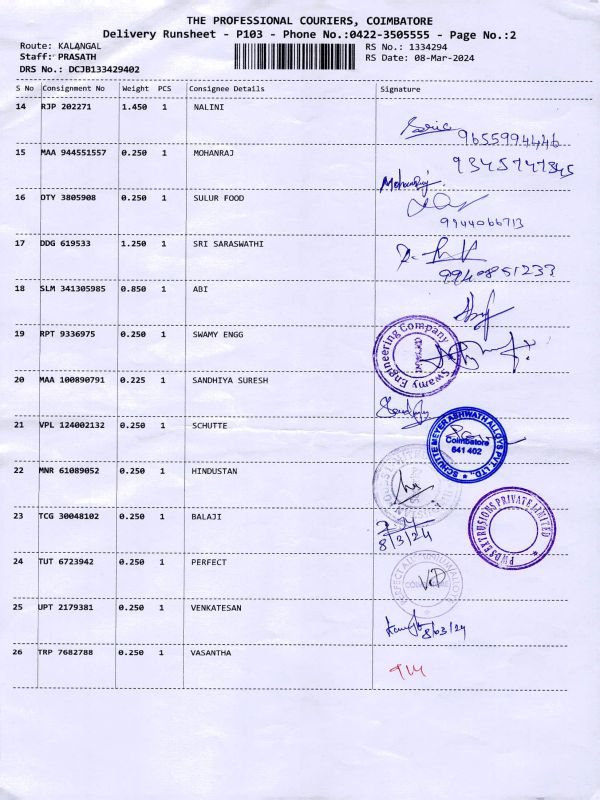 THE PROFESSIONAL COURIERS, COIMBATORE
Delivery Runsheet - P103 - Phone No.:0422-3505555 - Page No.:2
Route: KALANGAL RS No.: 1334294
Staff: PRASATH RS Date: 08-Mar-2024
DRS No.: DCJB133429402
S No Consignment No Weight PCS Consignee Details Signature
14 RJP 202271 1.450 1 NALINI
9655994446
15 MAA 944551557 0.250 1 MOHANRAJ
9345747345
Mohanraj
16 OTY 3805908 0.250 1 SULUR FOOD
9944066713
17 DDG 619533 1.250 1 SRI SARASWATHI
9940851233
18 SLM 341305985 0.850 1 ABI
19 RPT 9336975 0.250 1 SWAMY ENGG
Swamy Engineering Company
20 MAA 100890791 0.225 1 SANDHIYA SURESH
21 VPL 124002132 0.250 1 SCHUTTE
SCHUTTE MEYER ASHWATH ALLOYS PVT. LTD.,
Coimbatore
641 402
22 MNR 61089052 0.250 1 HINDUSTAN
23 TCG 30048102 0.250 1 BALAJI
8/3/24
EXTRUSIONS PRIVATE LIMITED
24 TUT 6723942 0.250 1 PERFECT
PERFECT
25 UPT 2179381 0.250 1 VENKATESAN
8/03/24
26 TRP 7682788 0.250 1 VASANTHA